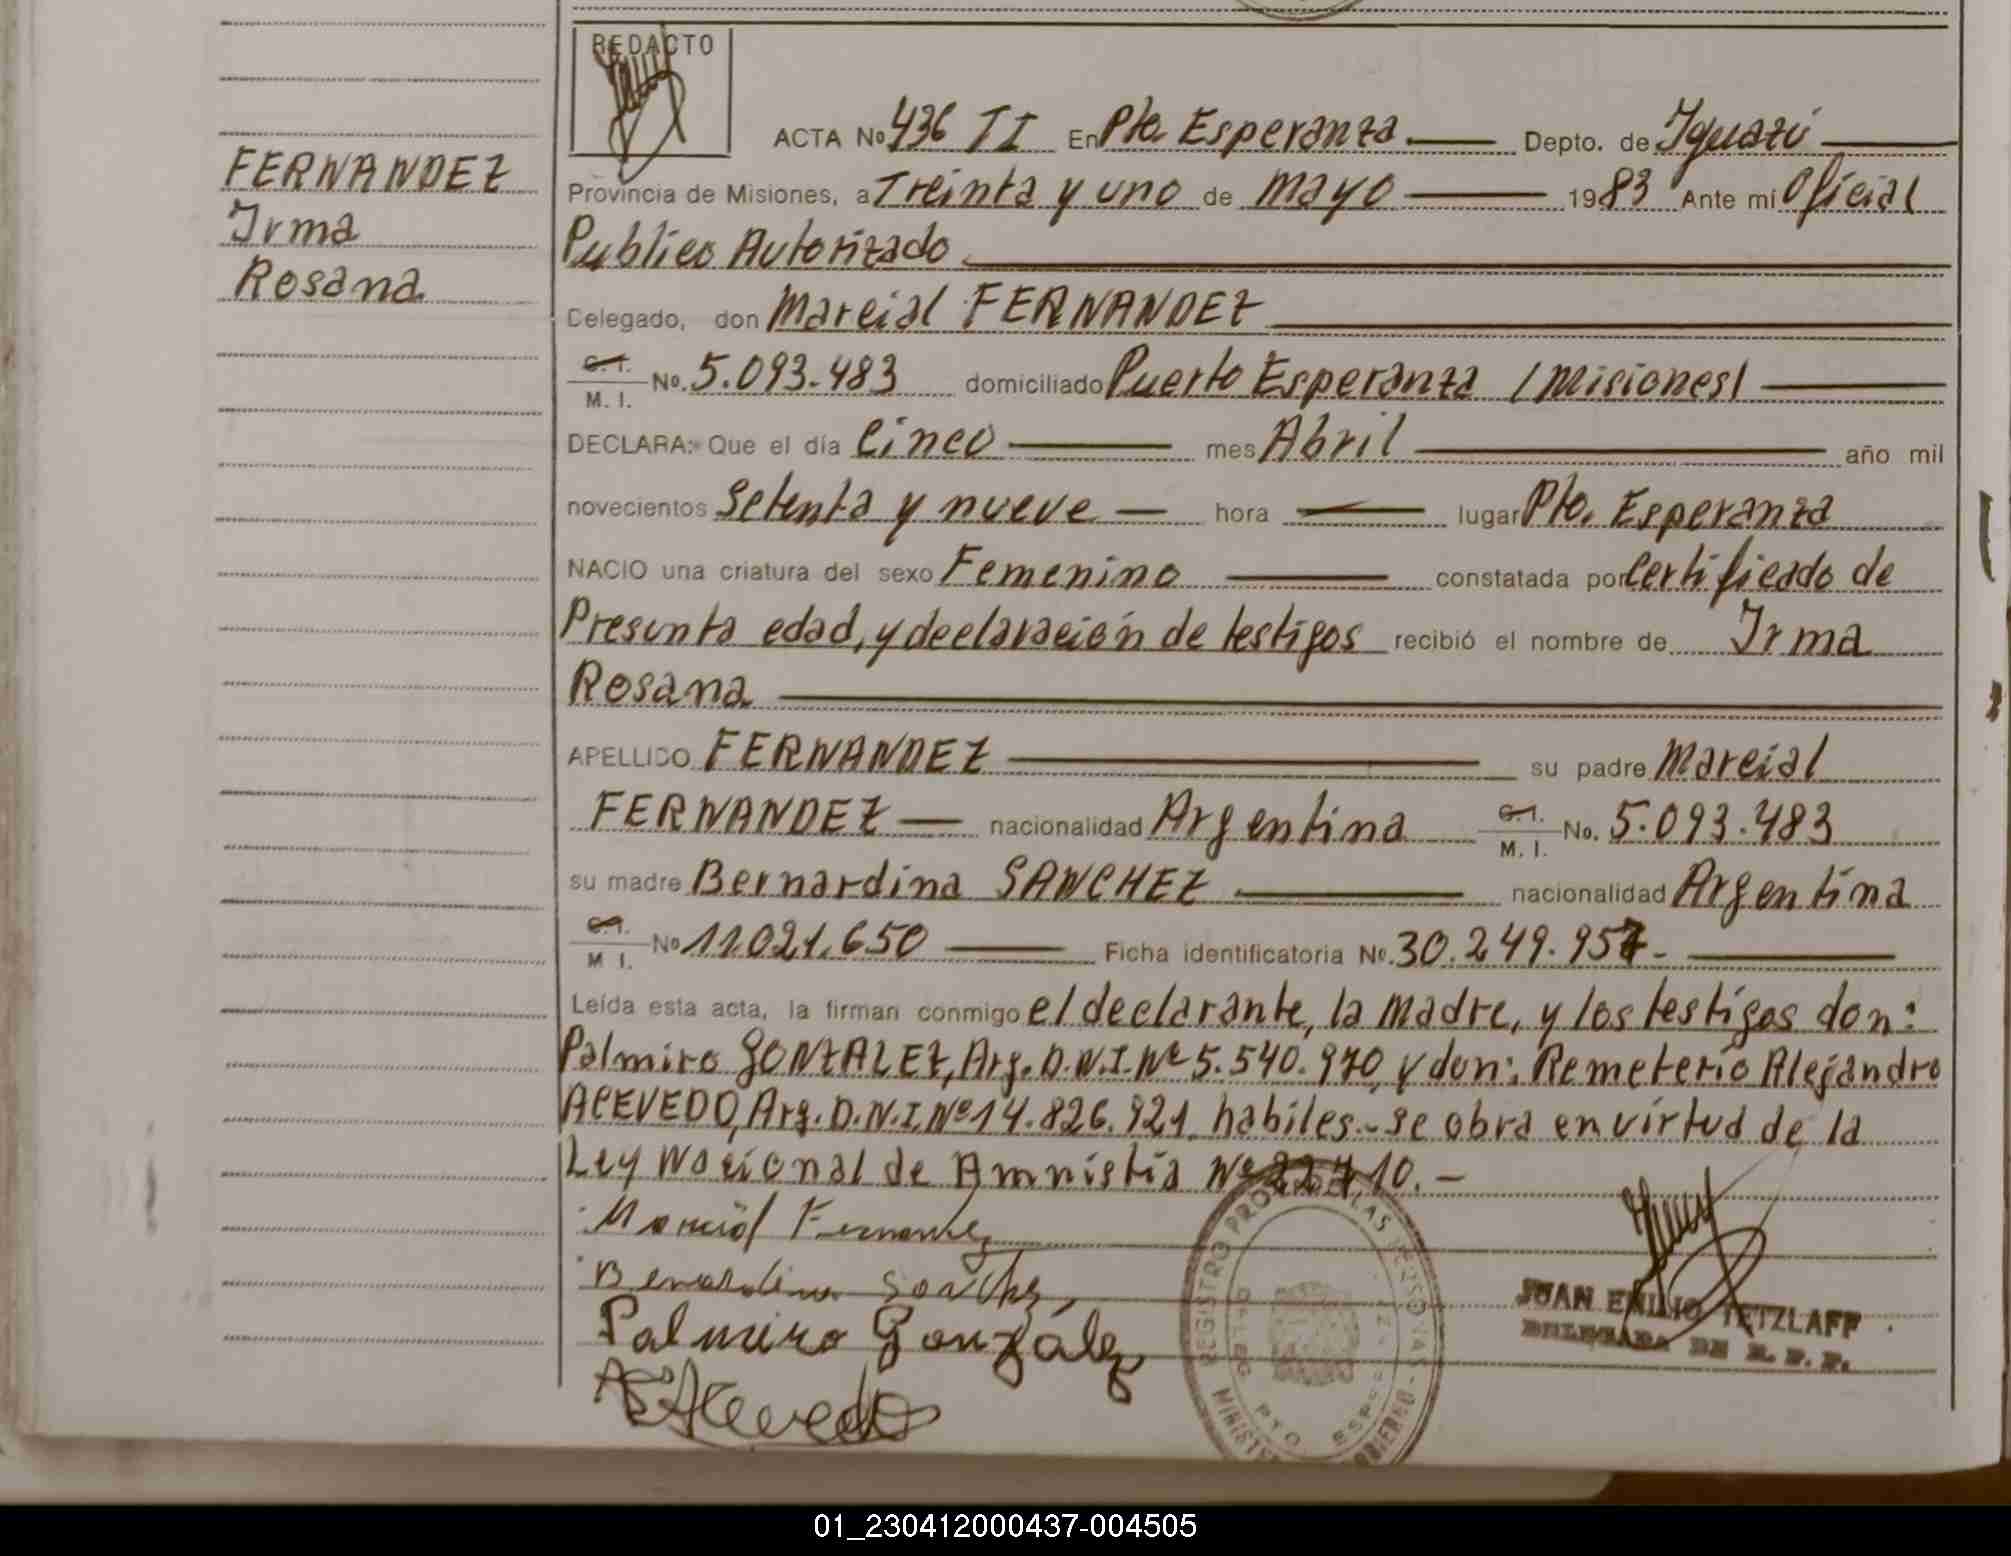 REDACTO
ACTA Nº 436 II En Pto. Esperanza Depto. de Iguazú
FERNANDEZ
Irma
Rosana
Provincia de Misiones, a Treinta y uno de mayo 1983 Ante mi Oficial
Publico Autorizado
Celegado, don Marcial FERNANDEZ
C.I. M. I. No. 5.093.483 domiciliado Puerto Esperanza /Misiones/
DECLARA: Que el día Cinco mes Abril año mil
novecientos Setenta y nueve hora lugar Pto. Esperanza
NACIO una criatura del sexo Femenino constatada por Certificado de
Presunta edad, y declaración de testigos recibió el nombre de Irma
Rosana
APELLIDO FERNANDEZ su padre Marcial
FERNANDEZ nacionalidad Argentina C.I. M. I. No. 5.093.483
su madre Bernardina SANCHEZ nacionalidad Argentina
C.I. M I. Nº 11.021.650 Ficha identificatoria Nº. 30.249.957-
Leída esta acta, la firman conmigo el declarante, la madre, y los testigos don:
Palmiro GONZALEZ, Arg. D.N.I. Nº 5.540.970, y don: Remeterio Alejandro
ACEVEDO, Arg. D.N.I. Nº 14.826.921, habiles.- se obra en virtud de la
Ley Nacional de Amnistia Nº 22.410.-
Marcial Fernandez
Bernardina Sanchez
Palmiro González
Acevedo
REGISTRO PROV. DE LAS PERSONAS - MINISTERIO GOBIERNO
PTO ESP
JUAN EMILIO TETZLAFF
DELEGADO DE R. P. P.
01_230412000437-004505